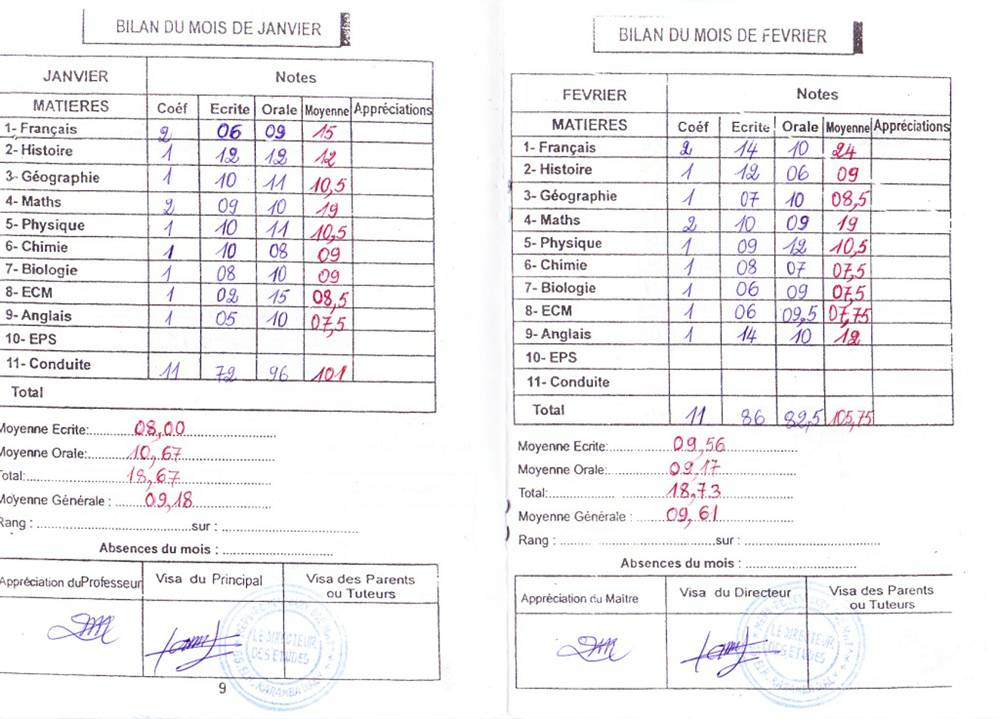 BILAN DU MOIS DE JANVIER
JANVIER Notes
MATIERES Coéf Ecrite Orale Moyenne Appréciations
1- Français 2 06 09 15
2- Histoire 1 12 12 12
3- Géographie 1 10 11 10,5
4- Maths 2 09 10 19
5- Physique 1 10 11 10,5
6- Chimie 1 10 08 09
7- Biologie 1 08 10 09
8- ECM 1 02 15 08,5
9- Anglais 1 05 10 07,5
10- EPS
11- Conduite 11 72 96 101
Total
Moyenne Ecrite: 08,00
Moyenne Orale: 10,67
Total: 18,67
Moyenne Générale : 09,18
Rang : sur :
Absences du mois :
Appréciation du Professeur Visa du Principal Visa des Parents ou Tuteurs
LE DIRECTEUR
DES ETUDES
9
BILAN DU MOIS DE FEVRIER
FEVRIER Notes
MATIERES Coéf Ecrite Orale Moyenne Appréciations
1- Français 2 14 10 24
2- Histoire 1 12 06 09
3- Géographie 1 07 10 08,5
4- Maths 2 10 09 19
5- Physique 1 09 12 10,5
6- Chimie 1 08 07 07,5
7- Biologie 1 06 09 07,5
8- ECM 1 06 09,5 07,75
9- Anglais 1 14 10 12
10- EPS
11- Conduite
Total 11 86 82,5 105,75
Moyenne Ecrite: 09,56
Moyenne Orale: 09,17
Total: 18,73
Moyenne Générale : 09,61
Rang : sur :
Absences du mois :
Appréciation du Maitre Visa du Directeur Visa des Parents ou Tuteurs
LE DIRECTEUR
DES ETUDES